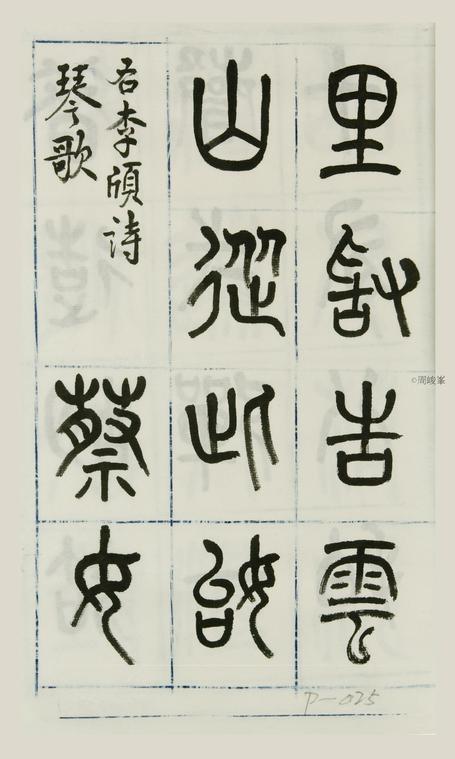 里敢告雲
山從此始
右李頎詩
琴歌
蔡女
©周峻峯
P-025